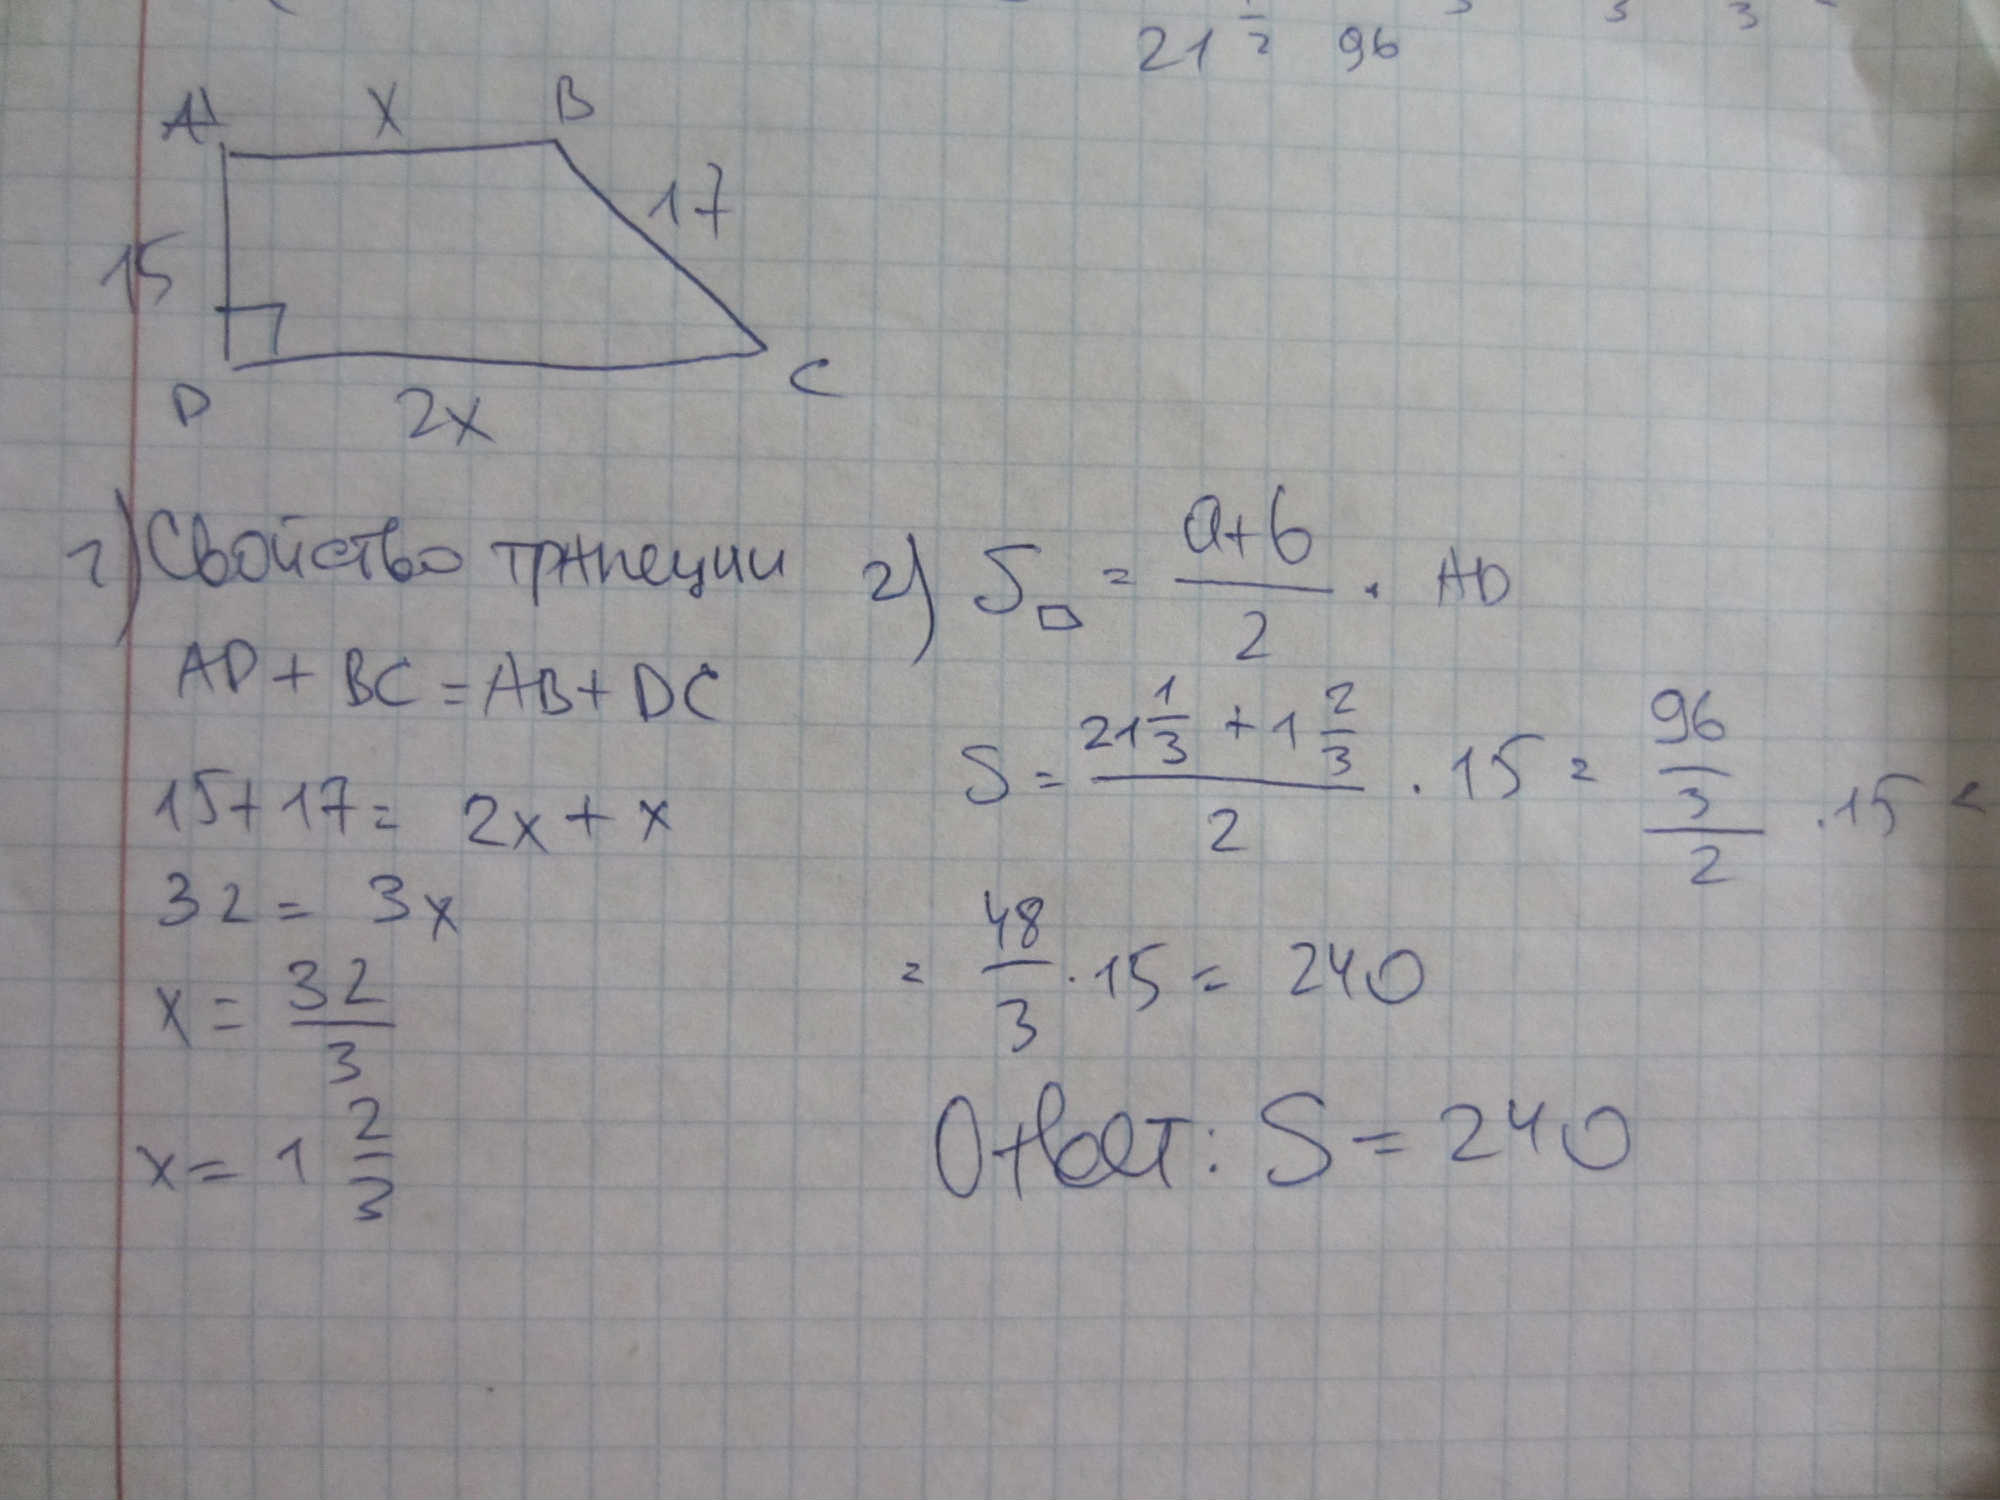 21 1/2 96
A x B
17
15
D 2x C
1) Свойство трапеции
AD + BC = AB + DC
15 + 17 = 2x + x
32 = 3x
x = 32/3
x = 1 2/3
2) S▱ = a+b/2 · AD
S = 21 1/3 + 1 2/3 / 2 · 15 = 96/3 / 2 · 15 =
= 48/3 · 15 = 240
Ответ: S = 240